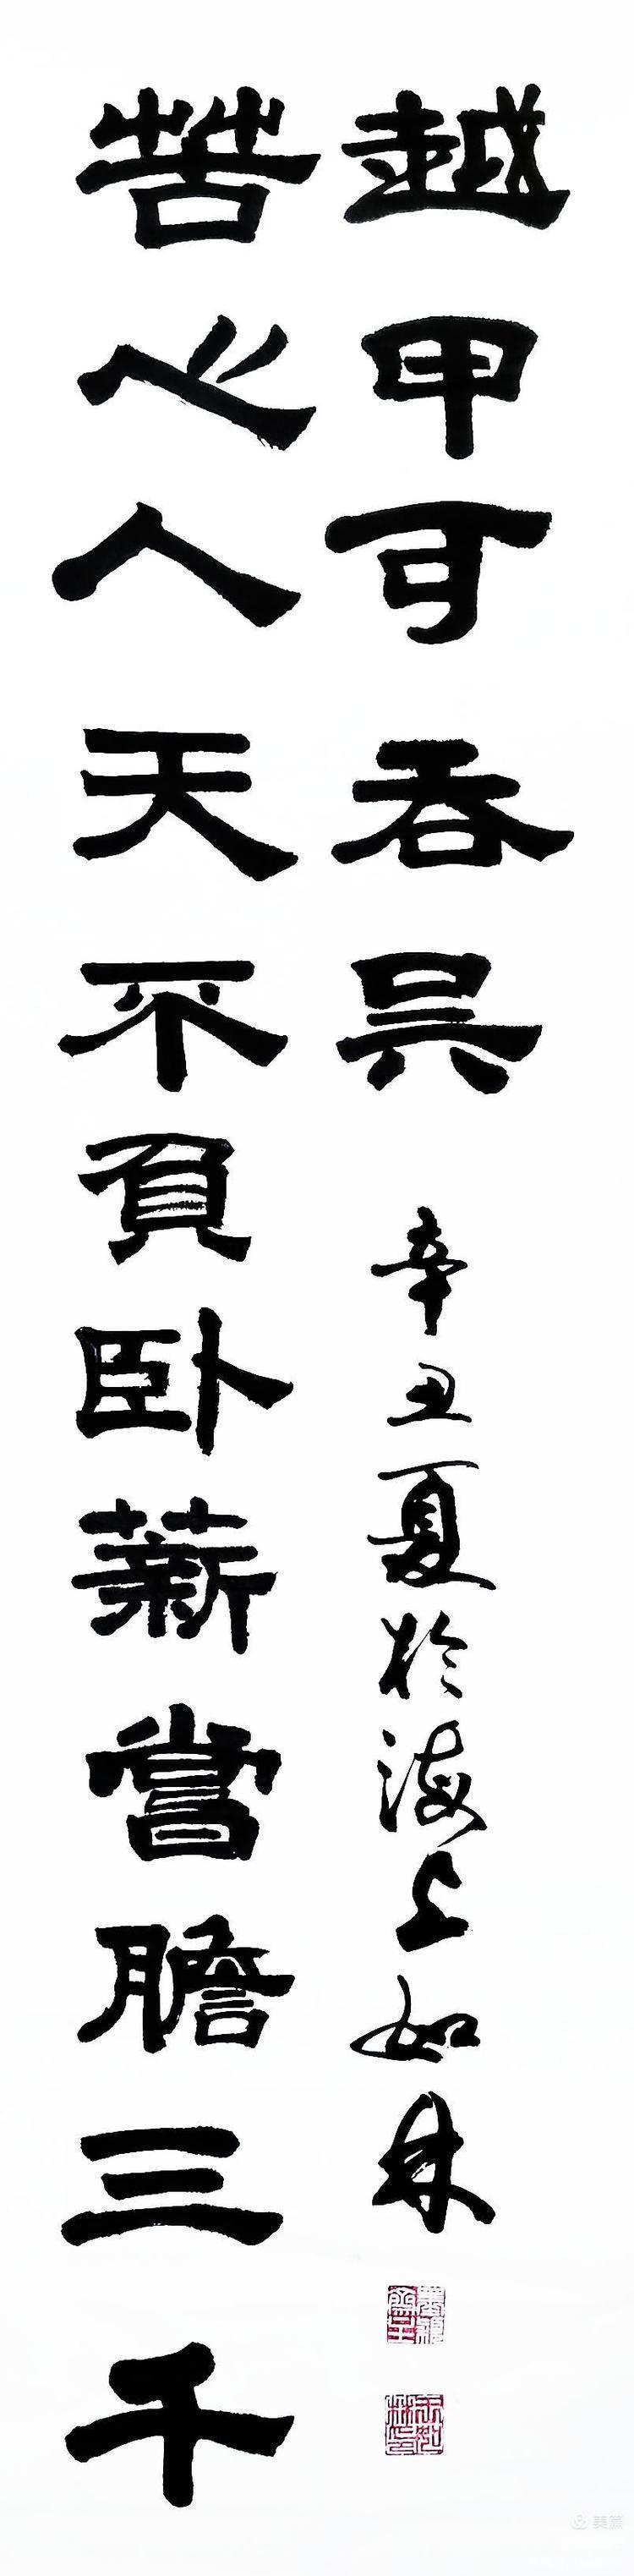 苦心人天不負卧薪嘗膽三千
越甲可吞吴
辛丑夏於海上如林
美篇